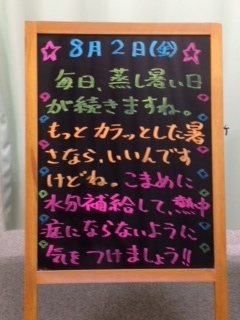 8月2日(金)
毎日、蒸し暑い日
が続きますね。
もっとカラっとした暑
さなら、いいんです
けどね。こまめに
水分補給して、熱中
症にならないように
気をつけましょう!!